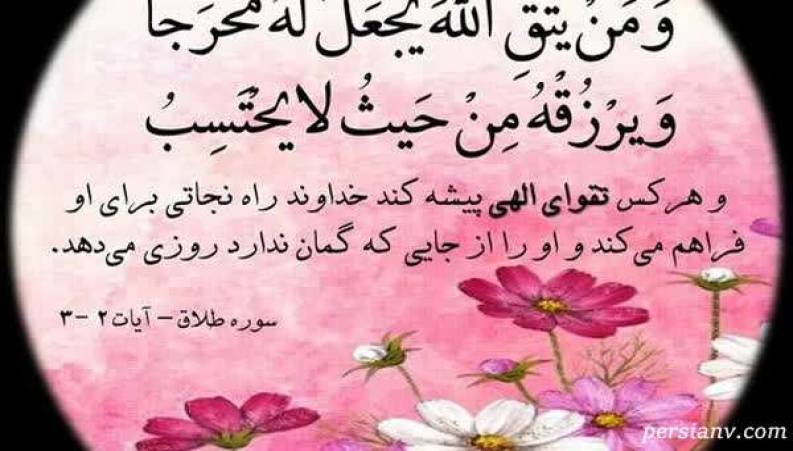 وَ مَنْ يَتَّقِ اللّٰهَ يَجْعَلْ لَهُ مَخْرَجاً
وَ يَرْزُقْهُ مِنْ حَيْثُ لا يَحْتَسِبُ
و هرکس تقوای الهی پیشه کند خداوند راه نجاتی برای او
فراهم می‌کند و او را از جایی که گمان ندارد روزی می‌دهد.
سوره طلاق – آیات ۲ – ۳
persianv.com